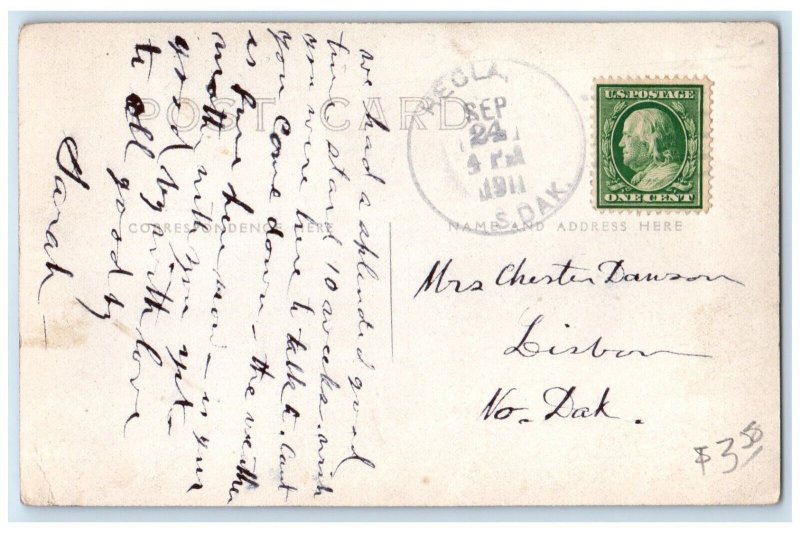 POST CARD
CORRESPONDENCE HERE
NAME AND ADDRESS HERE
HECLA,
SEP
24
4 PM
1911
S. DAK.
U.S. POSTAGE
ONE CENT
we had a splendid good
time staid 10 weeks. wish
you were here to talk to. Cant
you Come down - the weather
is fine here now - is your
mother with you yet.
good by with love
to all good by
Sarah
Mrs Chester Dawson
Lisbon
No. Dak.
$3.50